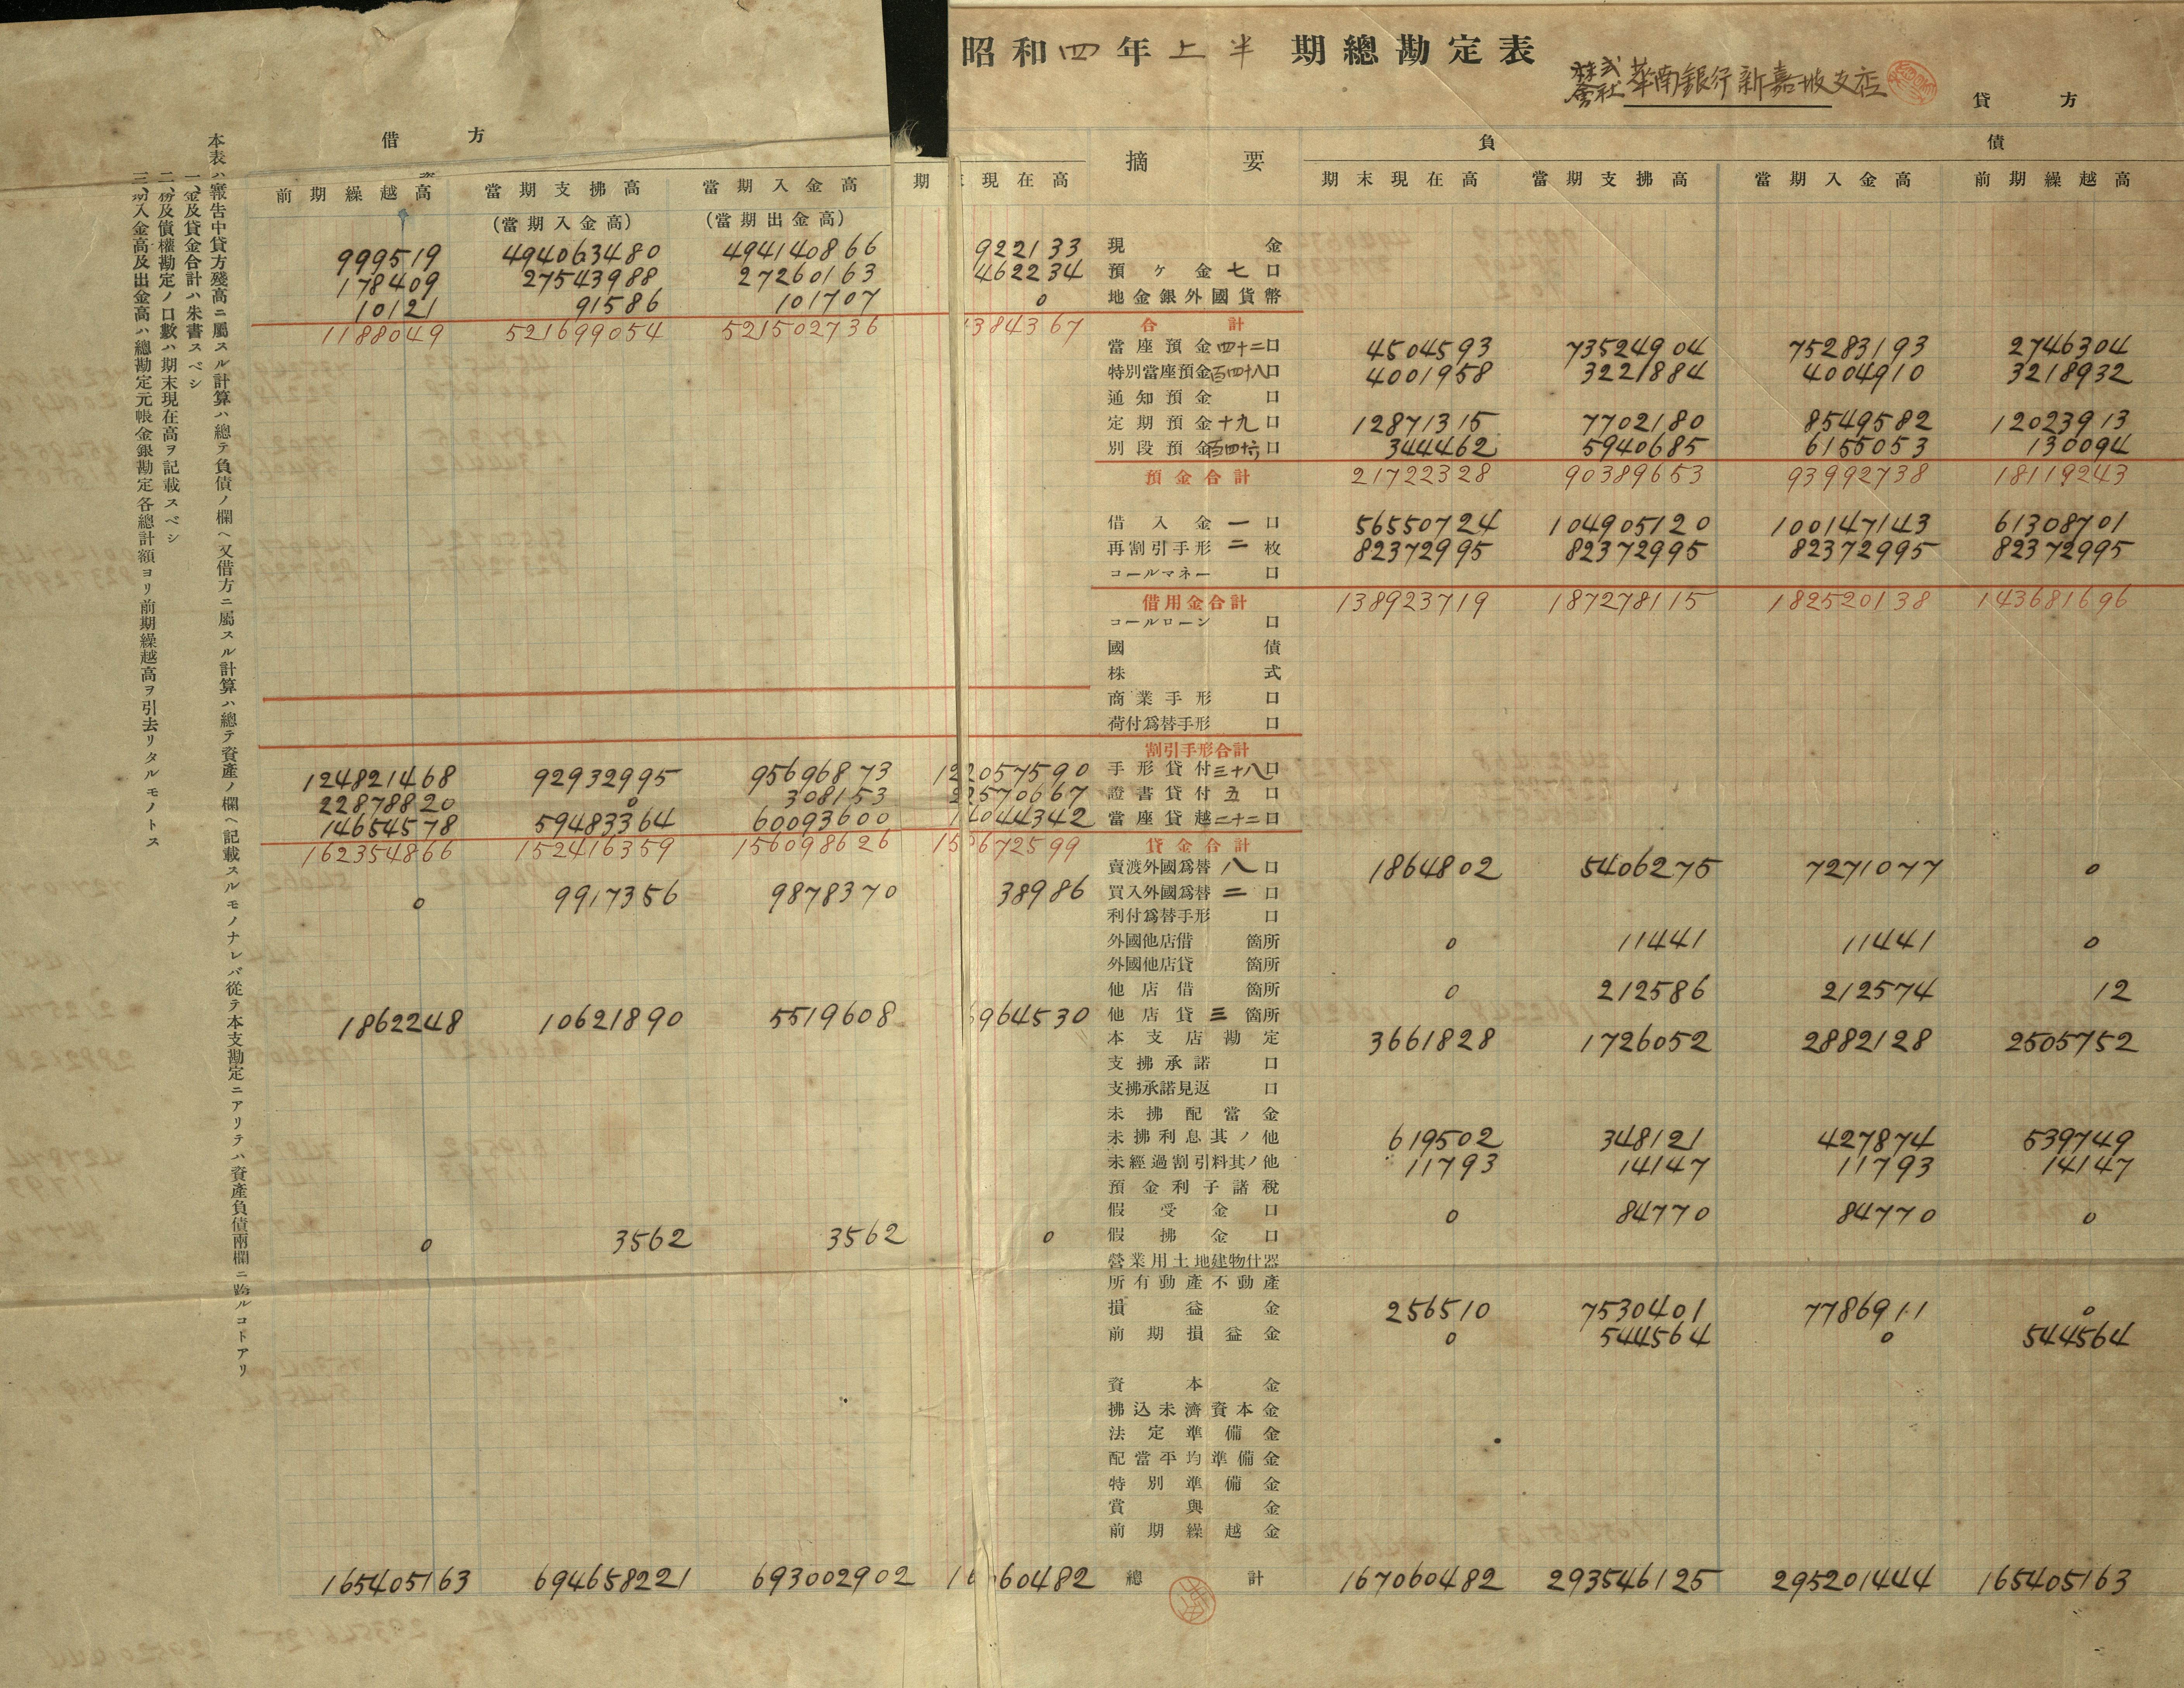 昭和四年上半期總勘定表
株式會社華南銀行新嘉坡支店
貸方
借方
摘要
負債
前期繰越高 當期支拂高 當期入金高 期 現在高 期末現在高 當期支拂高 當期入金高 前期繰越高
(當期入金高) (當期出金高)
999519 494063480 494140866 922133 現金
178409 27543988 27260163 462234 預ケ金七口
10121 91586 101707 0 地金銀外國貨幣
1188049 521699054 521502736 1384367 合計
當座預金四十二口 4504593 73524904 75283193 2746304
特別當座預金百四十八口 4001958 3221884 4004910 3218932
通知預金口
定期預金十九口 12871315 7702180 8549582 12023913
別段預金百四十六口 344462 5940685 6155053 130094
預金合計 21722328 90389653 93992738 18119243
借入金一口 56550724 104905120 100147143 61308701
再割引手形二枚 82372995 82372995 82372995 82372995
コールマネー口
借用金合計 138923719 187278115 182520138 143681696
コールローン口
國債
株式
商業手形口
荷付爲替手形口
割引手形合計
124821468 92932995 95696873 122057590 手形貸付三十八口
22878820 0 308153 22570667 證書貸付五口
14654578 59483364 60093600 14044342 當座貸越二十二口
162354866 152416359 156098626 158672599 貸金合計
賣渡外國爲替八口 1864802 5406275 7271077 0
0 9917356 9878370 38986 買入外國爲替二口
利付爲替手形口
外國他店借箇所 0 11441 11441 0
外國他店貸箇所
他店借箇所 0 212586 212574 12
1862248 10621890 5519608 6964530 他店貸三箇所
本支店勘定 3661828 1726052 2882128 2505752
支拂承諾口
支拂承諾見返口
未拂配當金
未拂利息其ノ他 619502 348121 427874 539749
未經過割引料其ノ他 11793 14147 11793 14147
預金利子諸稅
假受金口 0 84770 84770 0
0 3562 3562 0 假拂金口
營業用土地建物什器
所有動產不動產
損益金 256510 7530401 7786911 0
前期損益金 0 544564 0 544564
資本金
拂込未濟資本金
法定準備金
配當平均準備金
特別準備金
賞與金
前期繰越金
165405163 694658221 693002902 167060482 總計 167060482 293546125 295201444 165405163
本表ハ審報告中貸方殘高ニ屬スル計算ハ總テ負債ノ欄ヘ又借方ニ屬スル計算ハ總テ資產ノ欄ヘ記載スルモノナレバ從テ本支勘定ニアリテハ資產負債兩欄ニ跨ルコトアリ
一、金及貸金合計ハ朱書スベシ
二、務及債權勘定ノ口數ハ期末現在高ヲ記載スベシ
三、期入金高及出金高ハ總勘定元帳金銀勘定各總計額ヨリ前期繰越高ヲ引去リタルモノトス